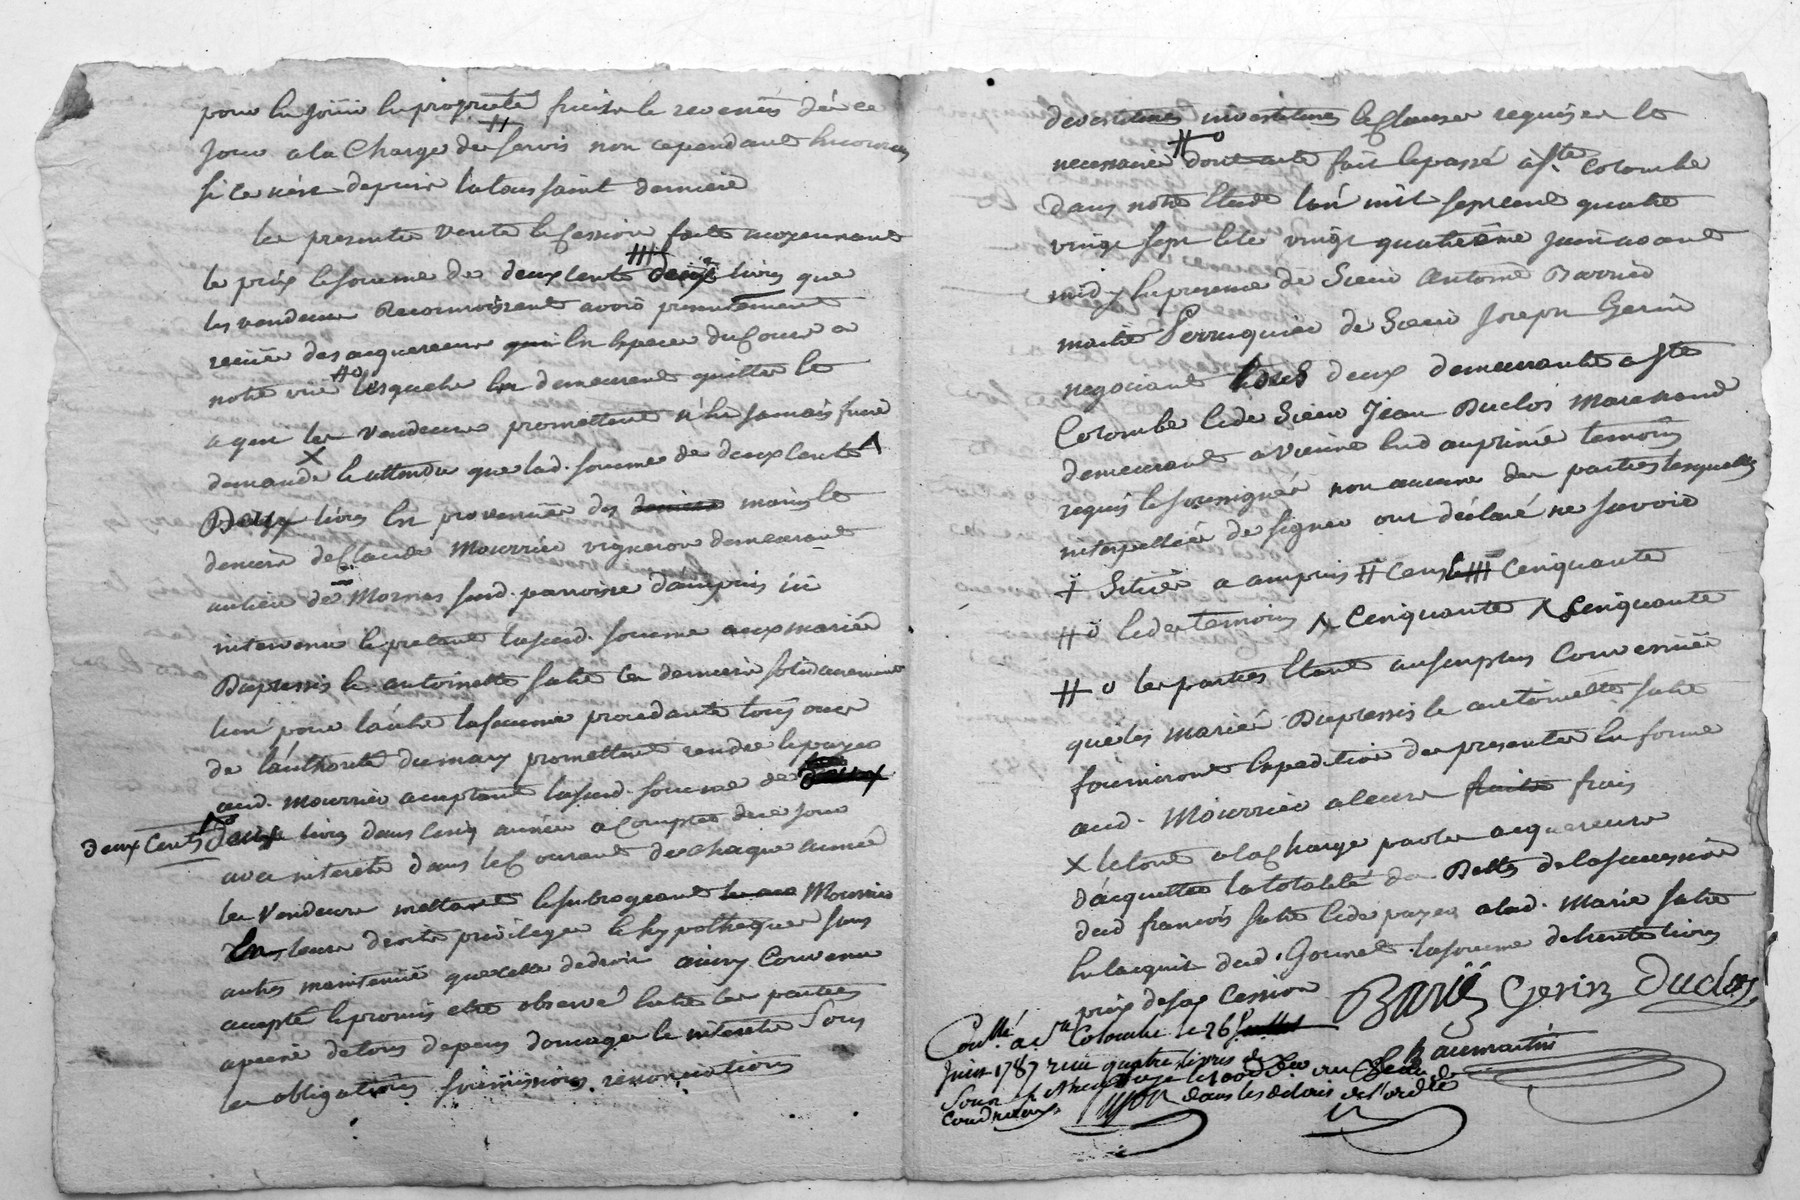 pour en Jouir en propriete fruits et revenus dès ce
Jour a la Charge des servis non cependant encourus
si ce n'est depuis la toussaint derniere
les presentes vente et Cession faites moyennant
le prix et somme de deux cents livres que
les vendeurs Reconnoissent avoir presentement
recues des acquereurs en especes du Cours a
notre vüe desquelles ils demeurent quittes et
a qui les vendeurs promettent n'en jamais faire
demande et attendu que lad. somme de deux cents
livres est provenüe des mains et
deniers de Claude Mourrier vigneron demeurant
au lieu de Mornas sus d. parroisse d'ampuis ici
intervenu et pretant lasusd. somme aux mariés
Duplessis et antoinette satre ces derniers solidairement
l'un pour l'autre la femme procedante sous
de l'authorité du mary promettent rendre et payer
aud. Mourrier acceptant lasusd. somme de
deux Cents livres dans cinq années a Compter de ce jour
avec interets dans le Courant de chaque année
les Vendeurs mettant et subrogeant Mourrier
En leurs droits privileges et hypotheques sans
autres maintenüe que celle de droit ainsy Convenu
accepté et promis etre observé entre les parties
a peine de tous depens domages et interets sous
les obligations soumissions renonciations
devestitures investitures et Clauses requises et
necessaires dont acte fait et passé a Ste Colombe
dans notre Etude l'an mil sept cent quatre
vingt sept et le vingt quatrieme Juin avant
midy En presence de Sieur Antoine Barrier
maitre Perruquier de Sieur Joseph Gerin
negociant tous deux demeurants a Ste
Colombe et de Sieur Jean Duclos Marchand
demeurant a Vienne temoins
requis et soussignés non aucune des parties lesquelles
interpellées de signer ont déclaré ne savoir
Situés a ampuis # Cens cinquante
# o et des temoins Λ Cinquante Λ Cinquante
# o les parties etant au surplus Convenües
que les mariés Duplessis et antoinette satre
fourniront Expedition des presentes En forme
aud. Mourrier a leurs frais
X le tout a la Charge par les acquereurs
d'acquitter la totalité des Dettes de la succession
dud françois satre et de payer a lad. Marie satre
En l'acquit dud. Gounet la somme de trente livres
prix de sa Cession
Barié Gerin Duclos
Con.llé a Ste Colombe le 26
Juin 1787 recu quatre livres
dans les delais de l'ordre
Condrieux